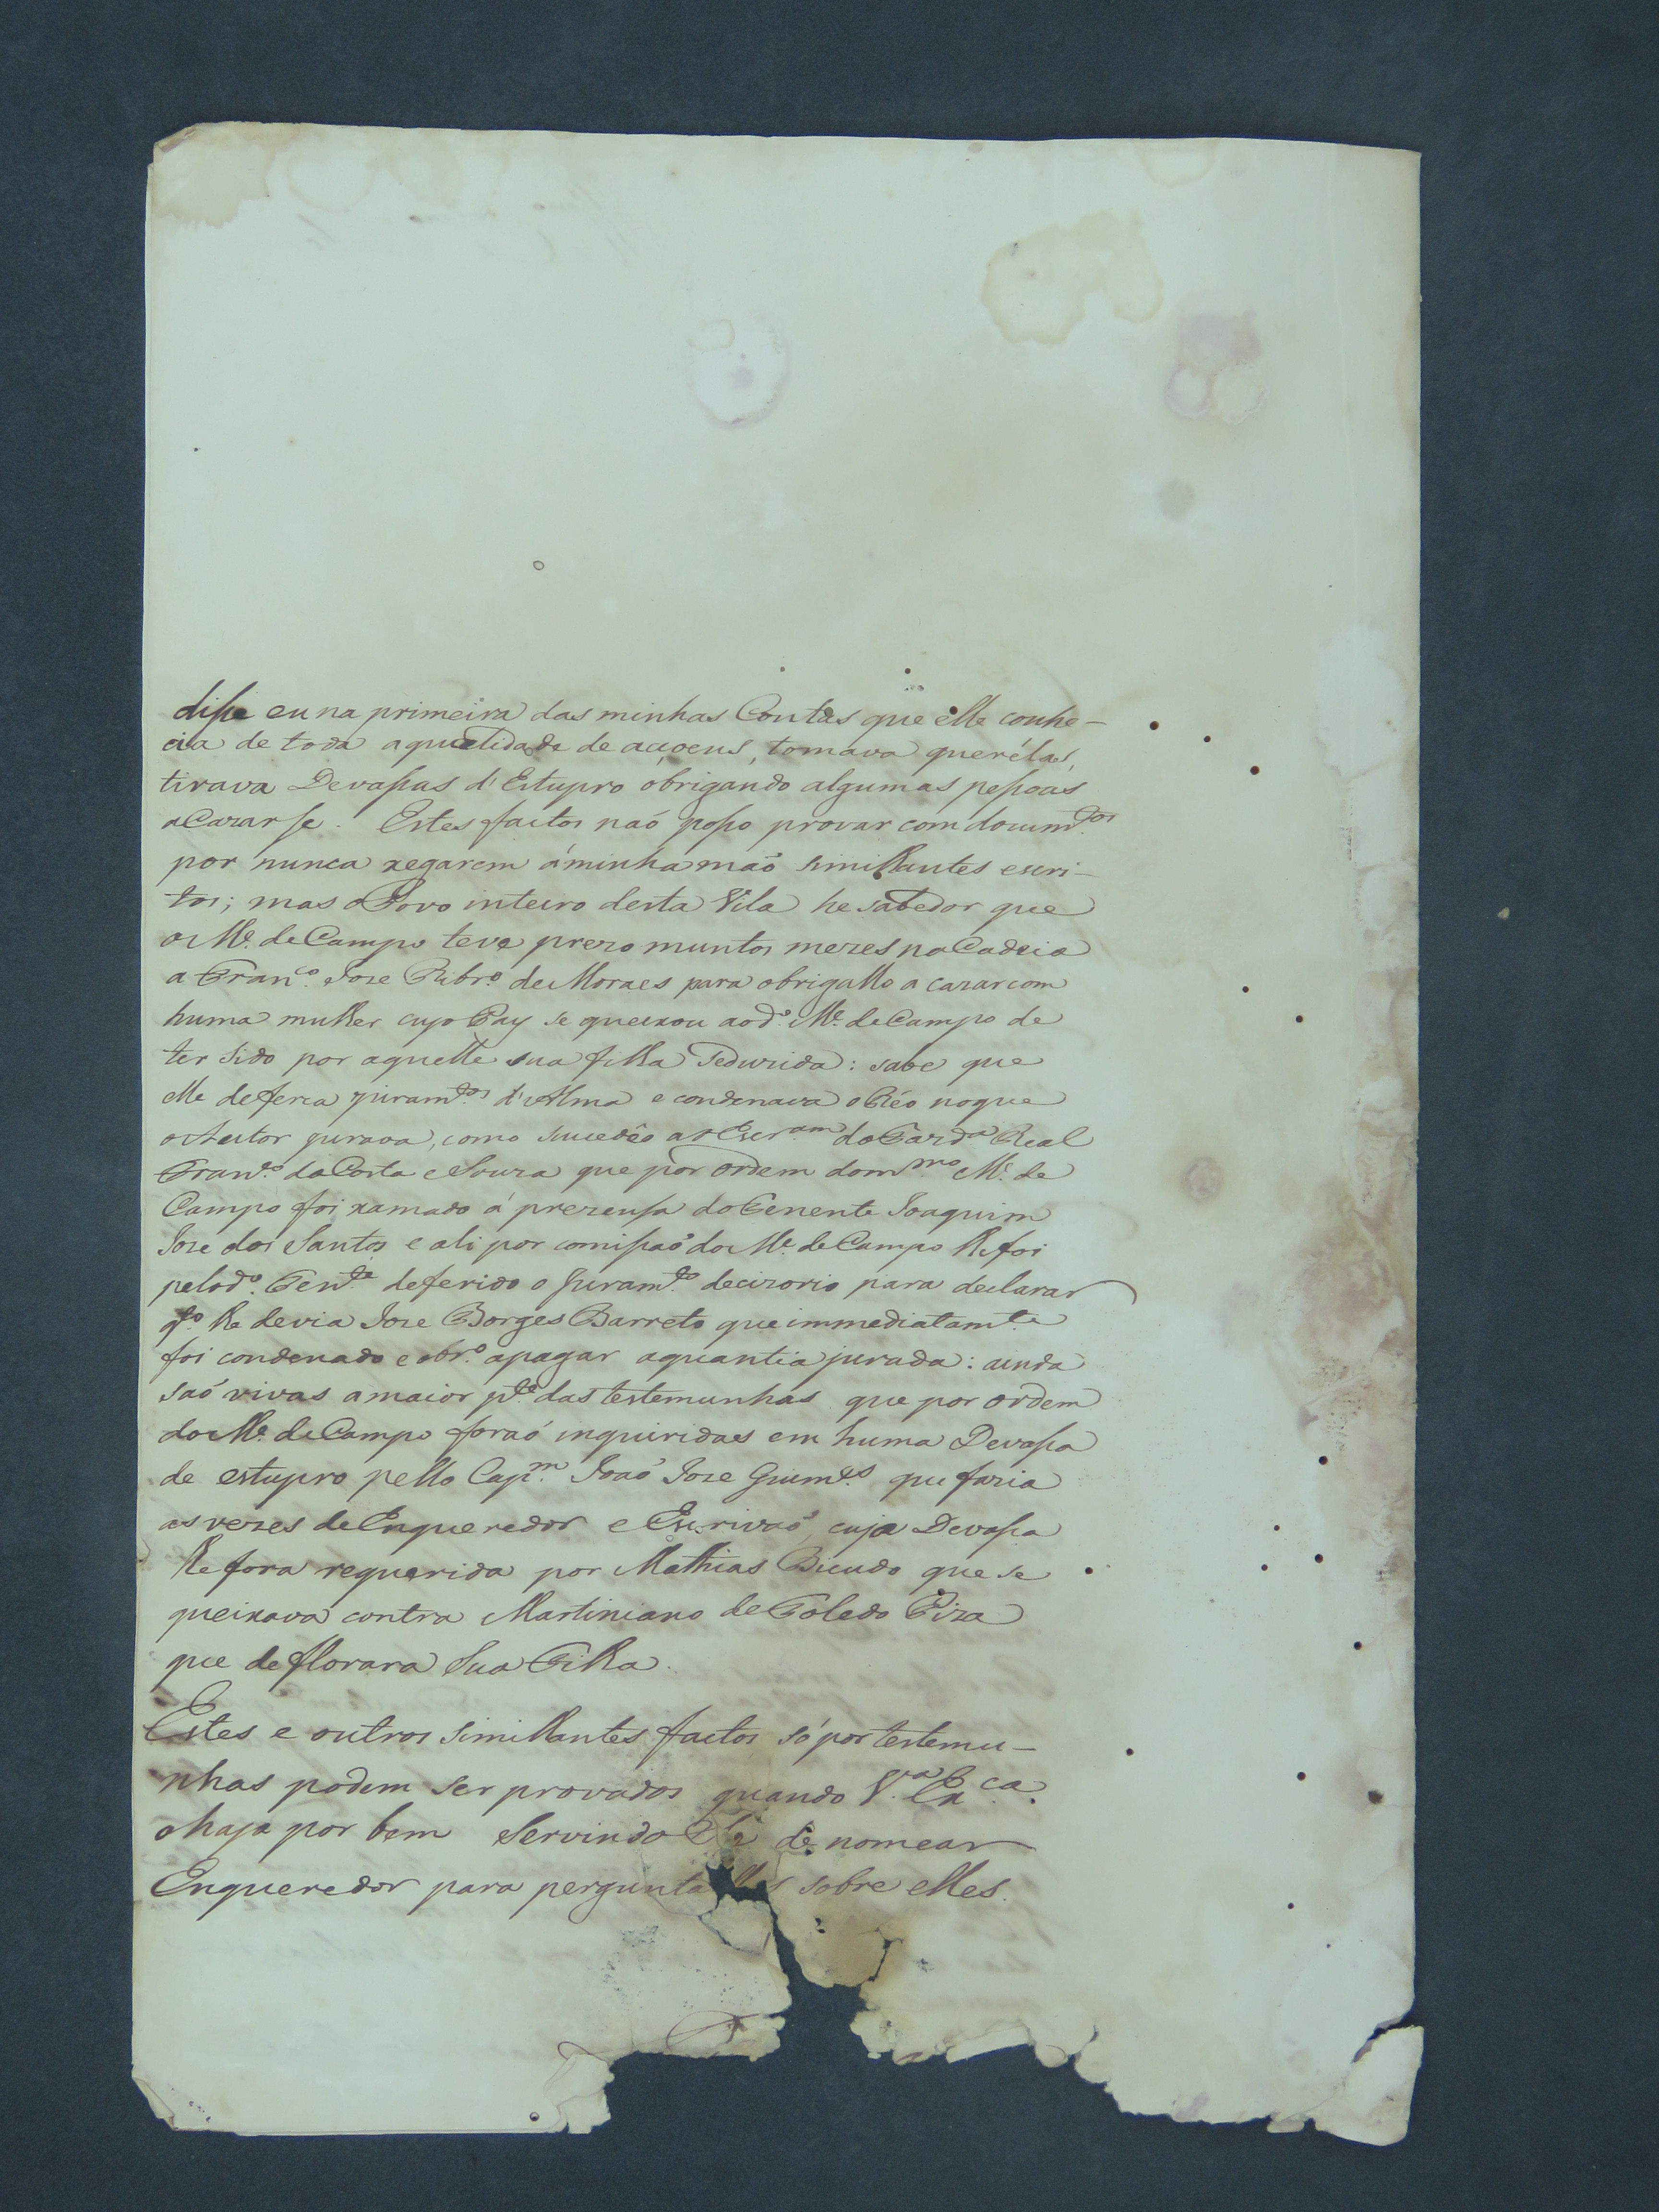 disse eu na primeira das minhas Contas que elle conhe-
cia de toda a qualidade de acçoens, tomava querélas,
tirava Devassas d'Estupro obrigando algumas pessoas
a Cazarse. Estes factos naõ posso provar com docum.tos
por nunca xegarem á minha maõ similhantes escri-
tos; mas o Povo inteiro desta Vila he sabedor que
o M.e de Campo teve prezo muntos mezes na Cadeia
a Fran.co Joze Ribr.o de Moraes para obrigallo a cazar com
huma mulher cujo Pay se queixou ao d.o M.e de Campo de
ter sido por aquelle sua filha seduzida: sabe que
elle deferia juram.tos d'Alma e condenava o Réo no que
o Autor jurava, como sucedêo ao Escr.am da Fazd.a Real
Fran.co da Costa e Souza que por ordem do m.mo M.e de
Campo foi xamado á prezensa do Tenente Joaquim
Joze dos Santos e ali por comissaõ do M.e de Campo lhe foi
pelo d.o Ten.te deferido o Juram.to decizorio para declarar
q.to lhe devia Joze Borges Barreto que immediatam.te
foi condenado e obr.o a pagar a quantia jurada: ainda
saõ vivas a maior p.te das testemunhas que por ordem
do M.e de Campo foraõ inquiridas em huma Devassa
de estupro pello Cap.m Joaõ Joze Guim.es que fazia
as vezes de Enqueredor e Escrivaõ, cuja Devassa
lhe fora requerida por Mathias Bicudo que se
queixava contra Martiniano de Toledo Piza
que deflorara sua Filha.
Estes e outros similhantes factos só por testemu-
nhas podem ser provados quando V.a Ex.ca
o haja por bem servindo de nomear
Enqueredor para pergunta sobre elles.